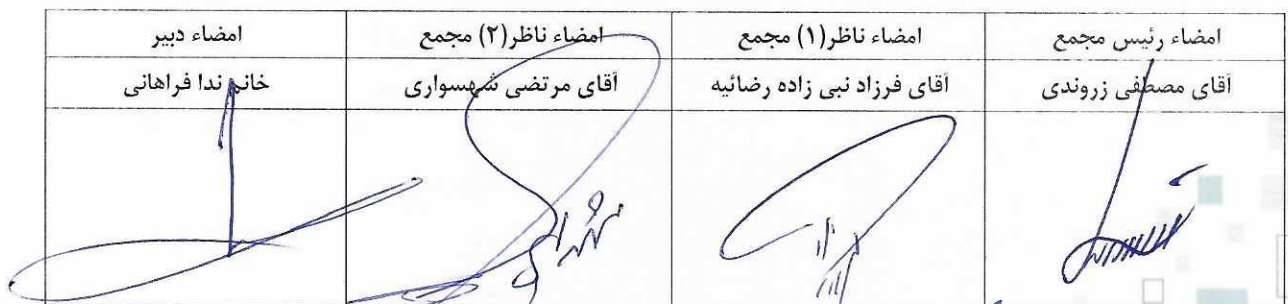 امضاء رئیس مجمع
امضاء ناظر(۱) مجمع
امضاء ناظر(۲) مجمع
امضاء دبیر
آقای مصطفی زروندی
آقای فرزاد نبی زاده رضائیه
آقای مرتضی شهسواری
خانم ندا فراهانی